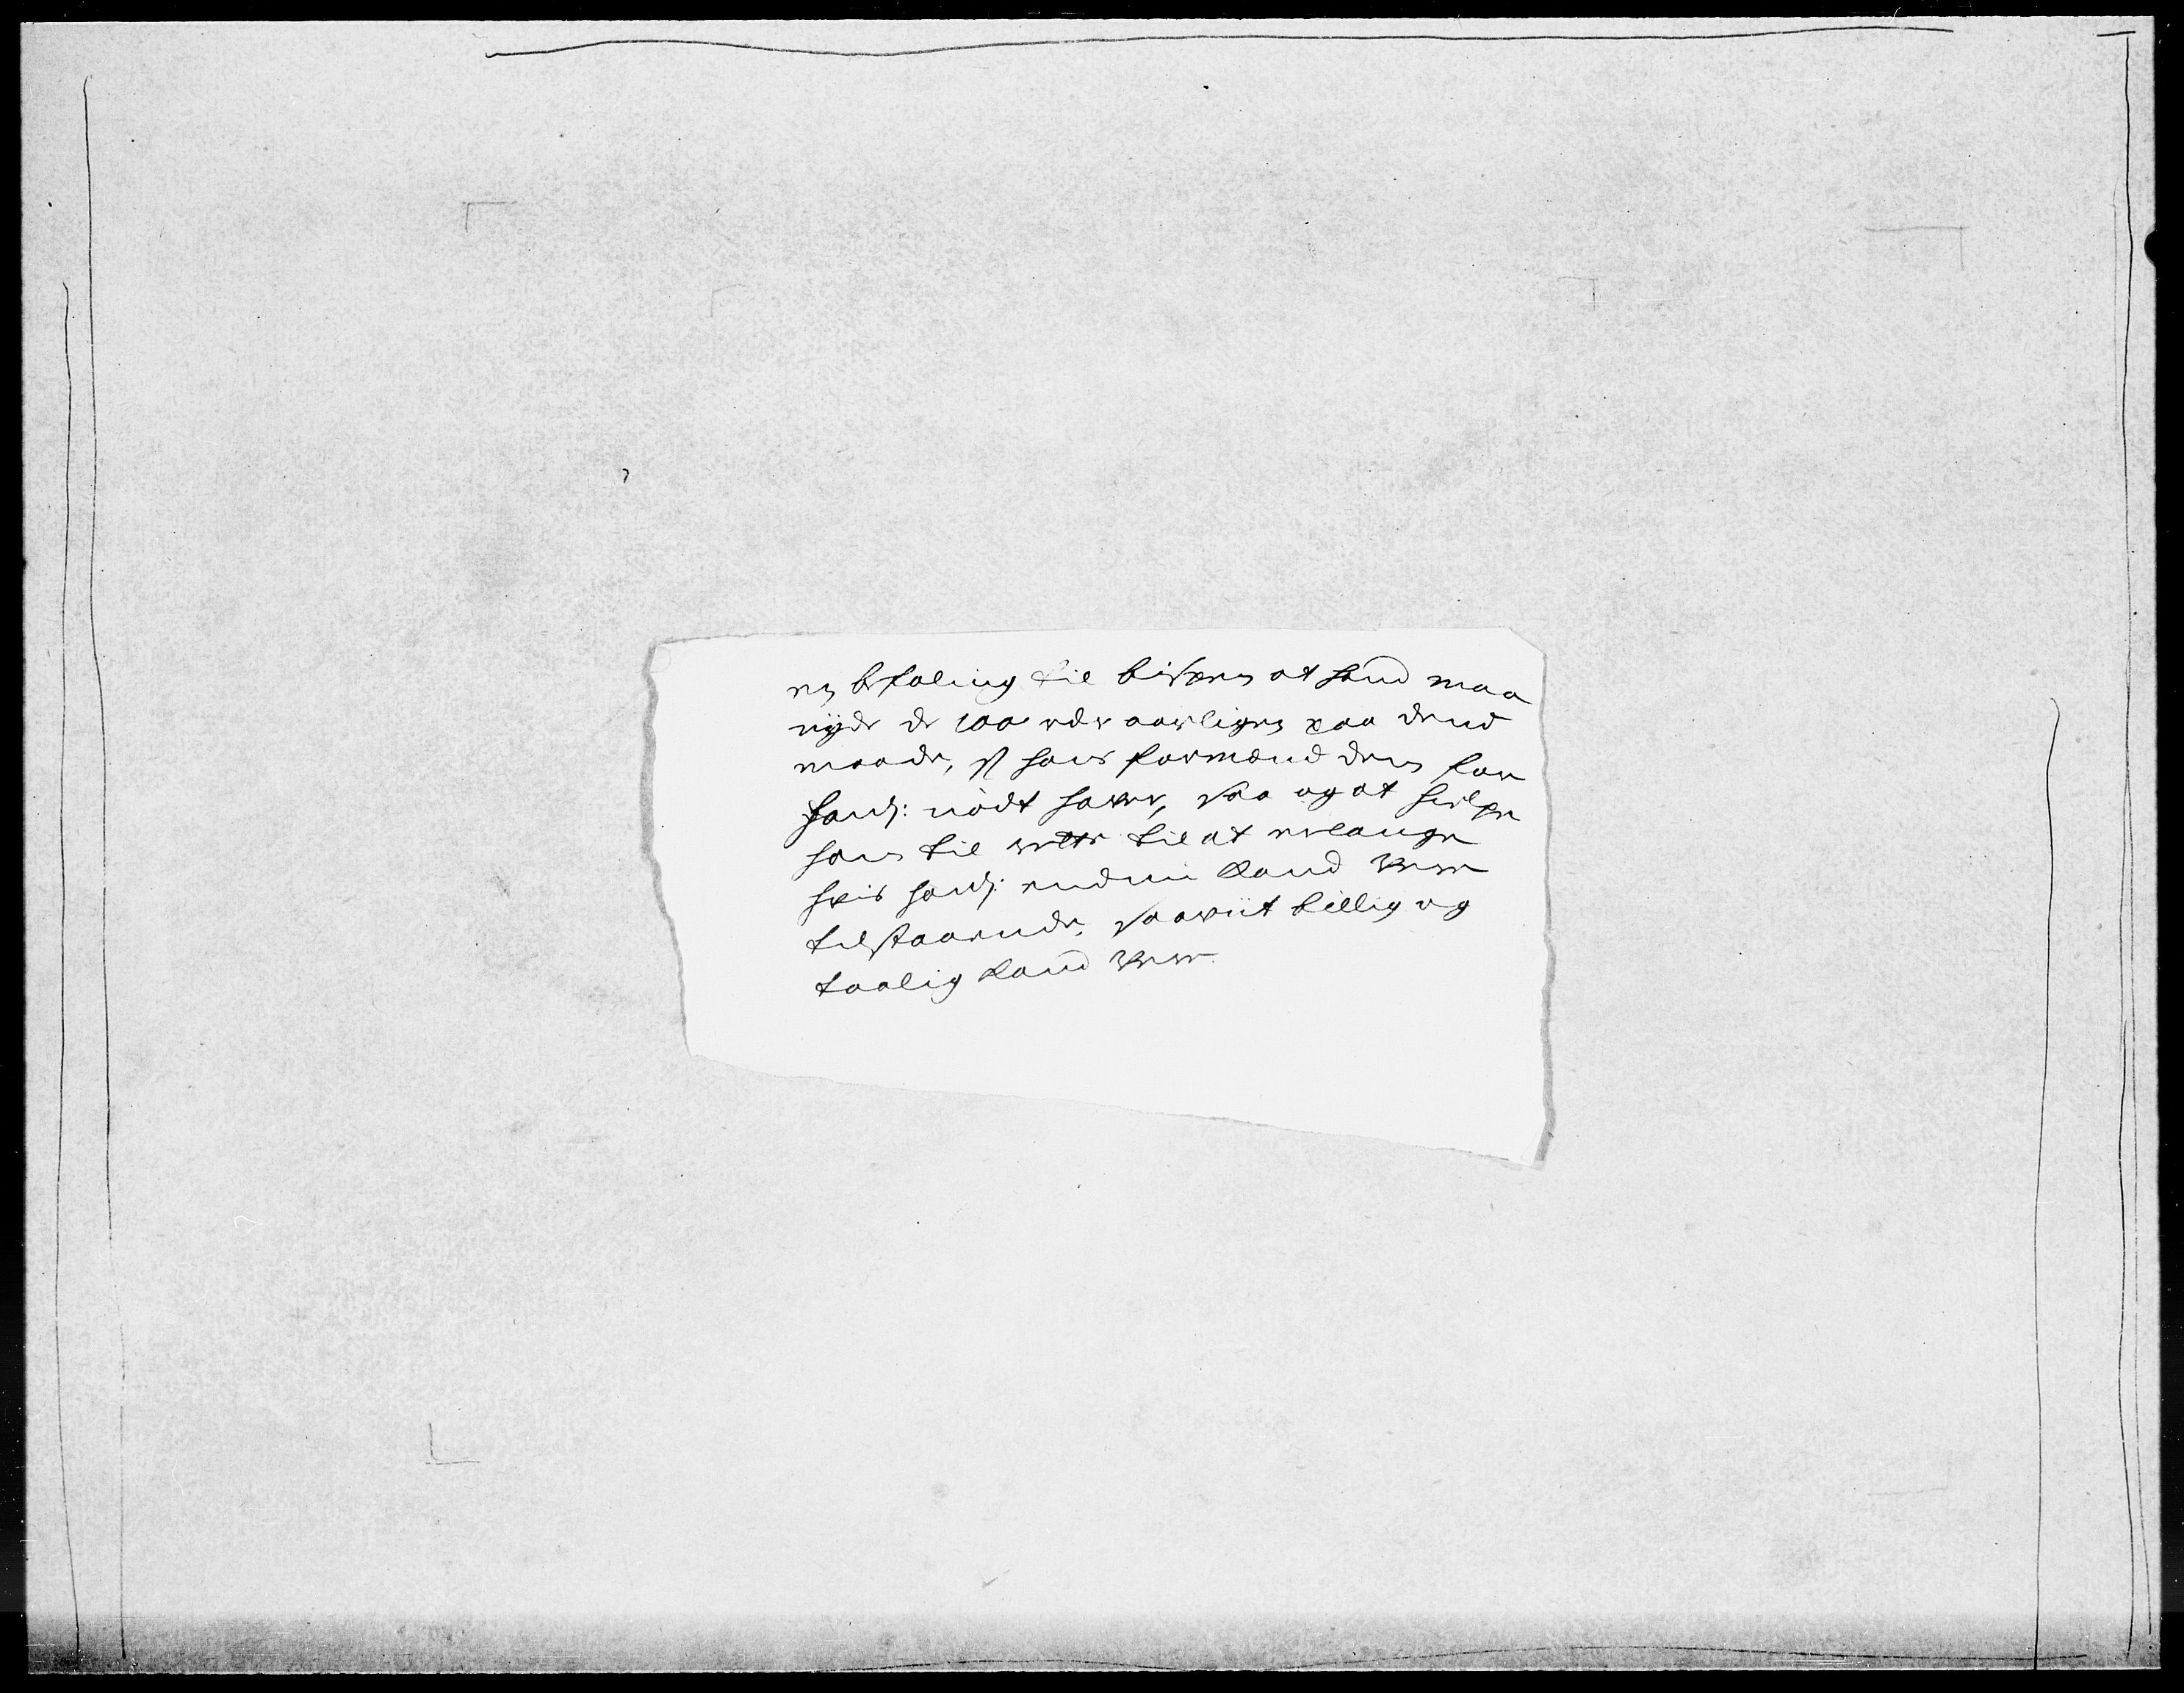 en befaling til bispen at hand maa
nyde de 100 rdr aarligen paa dend
maade, som hans formænd dem for
hans: nödt hafver, saa og at hielpe
ham til rette til at erlange
hvis hans: endnu kand være
tilstaaende, saavit billig og
taalig kand være